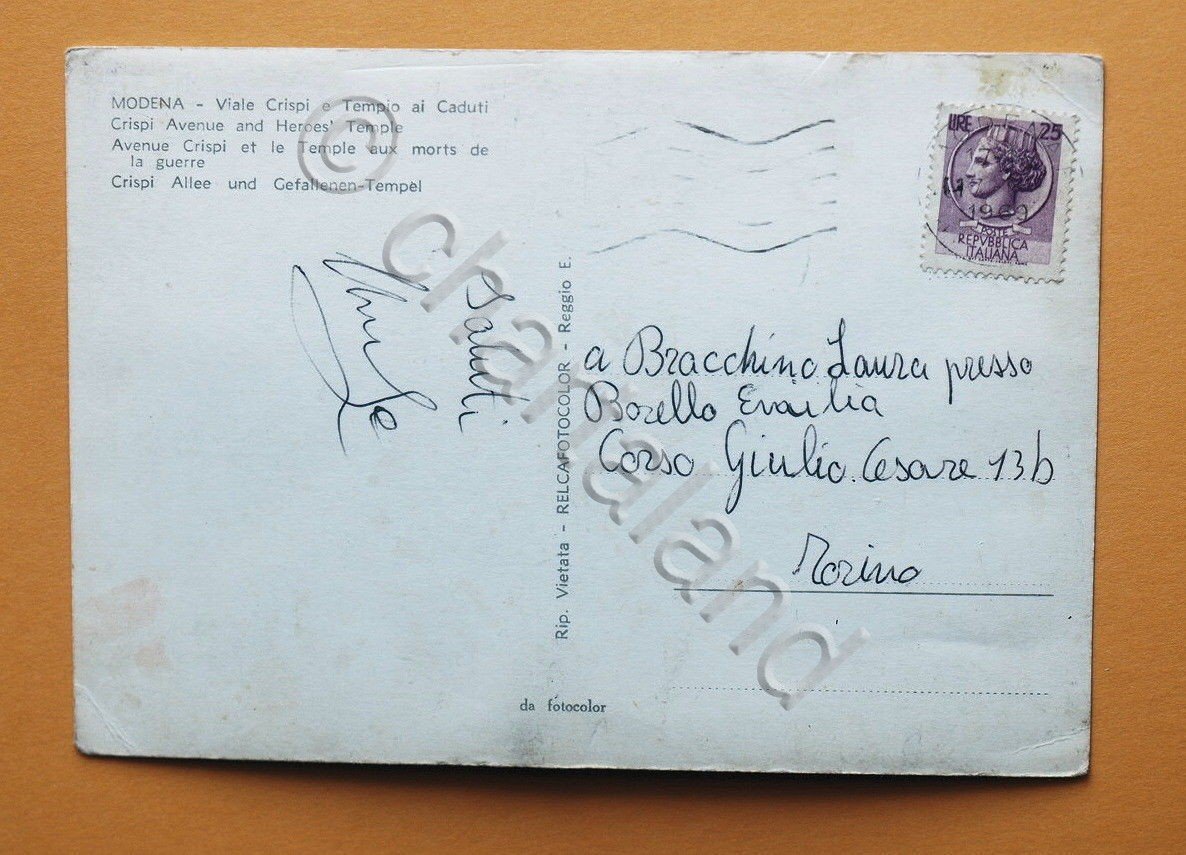 MODENA - Viale Crispi e Tempio ai Caduti
Crispi Avenue and Heroes' Temple
Avenue Crispi et le Temple aux morts de
la guerre
Crispi Allee und Gefallenen-Tempel
LIRE 25
1969
POSTE
REPVBBLICA
ITALIANA
Saluti
Rip. Vietata - RELCAFOTOCOLOR - Reggio E.
a Bracchino Laura presso
Borello
Corso Giulio Cesare 13b
Torino
da fotocolor
© chanaland